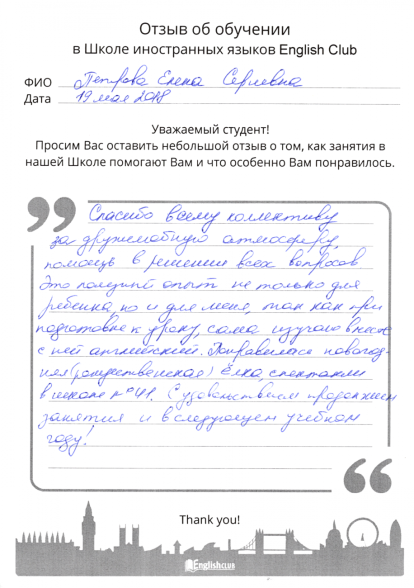 Отзыв об обучении
в Школе иностранных языков English Club
ФИО Петрова Елена Сергиевна
Дата 19 мая 2018
Уважаемый студент!
Просим Вас оставить небольшой отзыв о том, как занятия в
нашей Школе помогают Вам и что особенно Вам понравилось.
Спасибо всему коллективу
за дружелюбную атмосферу,
помощь в решении всех вопросов
Это полезный опыт не только для
ребенка, но и для меня, так как при
подготовке к уроку, сама изучаю вместе
с ней английский. Понравилась новогод-
няя (рождественская) Ёлка, спектакли
в школе №41. С удовольствием продолжим
занятия и в следующем учебном
году!
Thank you!
English CLUB